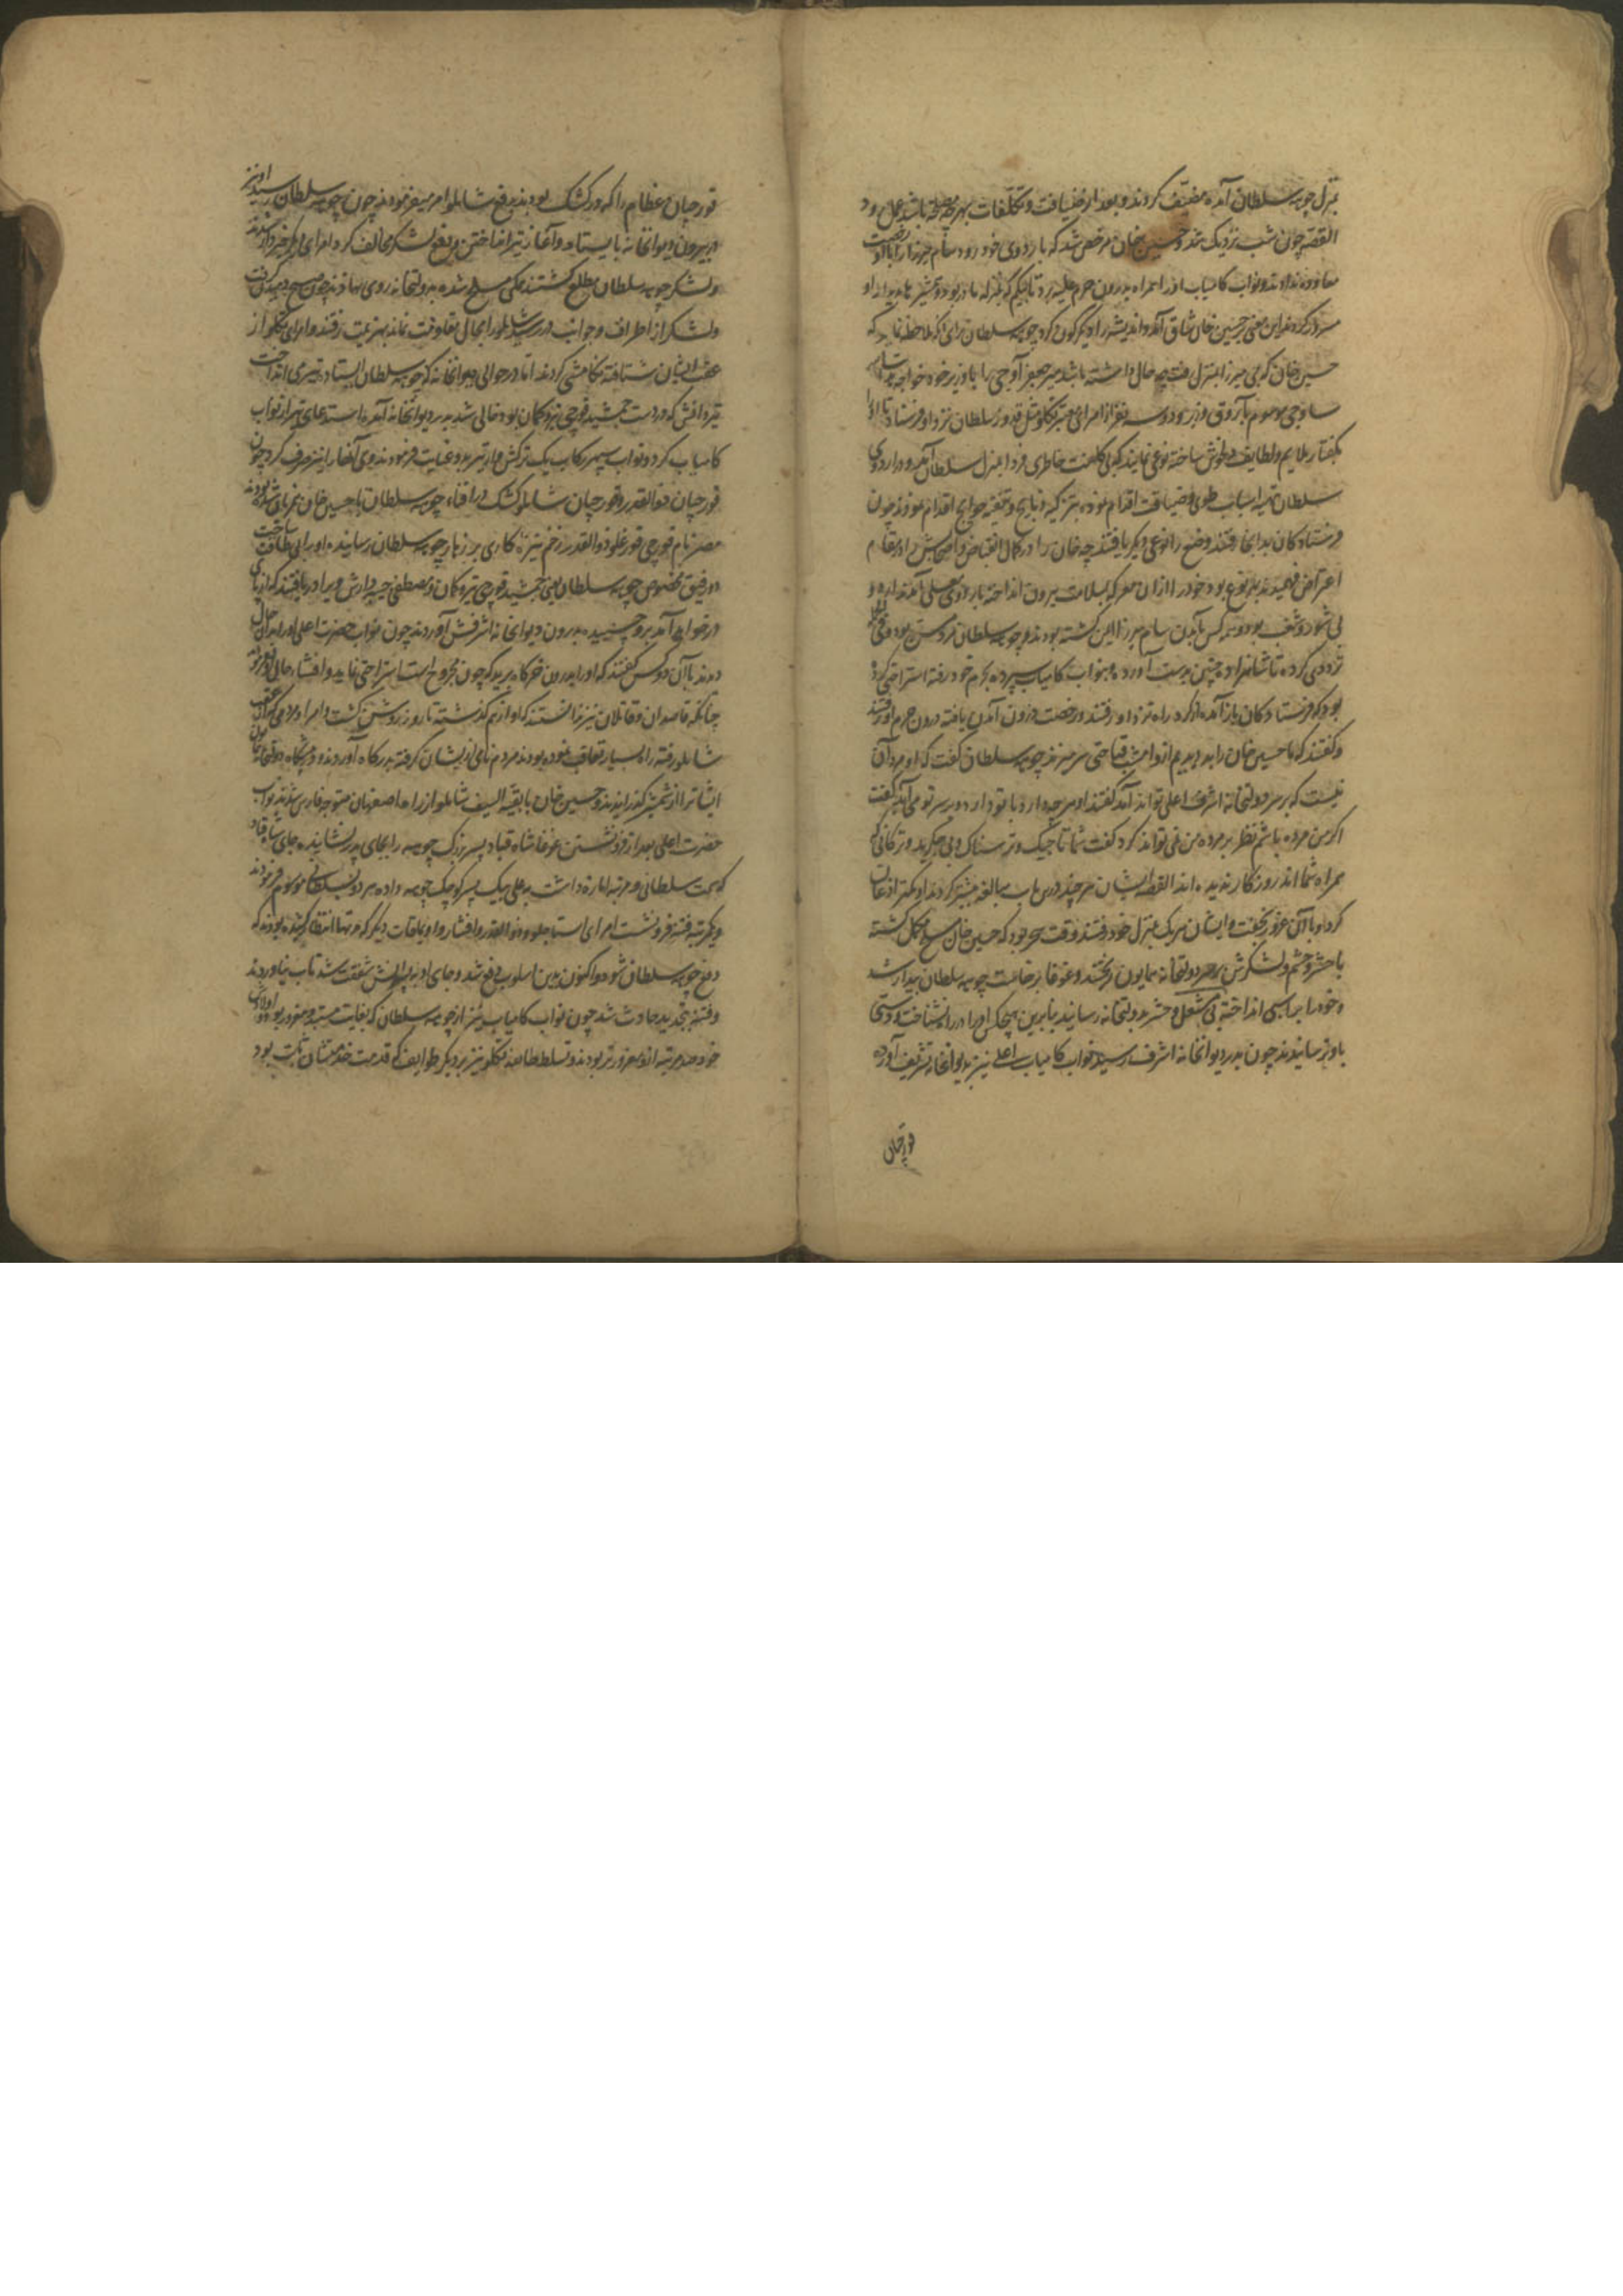 منزل چوهه سلطان آمده کردند و بعد از ضیافت و تکلفات
القصه چون شب نزدیک شد و حسین خان مرخص شد که باردوی خود رود سام میرزا را با او رخصت
معاودت ندادند و نواب کامیاب او را همراه بدرون حرم علیه برد تا بیکم که بمنزله مادر بود و
مسرور کردند این معنی بر حسین خان شاق آمد و اندیشه را دیگرگون کرد چوهه سلطان برای آنکه ملاحظه نماید که
حسین خان که بی میرزا بمنزل رفت چه حال داشته باشد میر جعفر آوجی را با وزیر خود خواجه
ساوجی موسوم با روق وزیر و دو سه نفر از امرای معتبر تکلو مثل قدور سلطان نزد او فرستاد تا او را
بگفتار ملایم و لطایف دلخوش ساخته نوعی نمایند که بی کلفت خاطری فردا بمنزل سلطان آید و در اردوی
سلطان تهیه اسباب طوی و ضیافت اقدام نموده و حوایج اقدام نمودند چون
فرستادکان بدانجا رفتند وضع را نوعی دیگر یافتند چه خان را در کمال انقباض و در مقام
اعراض فهمیدند بهر نوع بود خود را از آن معرکه بسلامت بیرون انداخته باردوی
بودند کس بآمدن سام میرزا ایمن گشته بودند و چوهه سلطان
ترددی کرده تا شاهزاده چنین بدست آورده و بنواب کامیاب سپرده بحرم خود رفته استراحتی کرده
بود که فرستادکان باز آمده از گرد راه نزد او رفتند و رخصت درون آمدن یافته درون حرم او رفتند
و گفتند که ما حسین خان را بد دیدیم از او امشب قباحتی سر میزند چوهه سلطان گفت که او مرد آن
نیست که بر سر دولتخانه اشرف اعلی تواند آمد گفتند او هرچه دارد با تو دارد و بر سر تو می آید گفت
اگر من مرده باشم نظر بر مرده من نمی تواند کرد گفت شما تاجیک و ترسناک و بی جگرید و ترکانی که
همراه شما اند روزگار ندیده اند القصه ایشان هرچند درین باب مبالغه بیشتر کردند او کمتر اذعان
کرد و با آن غرور بخفت و ایشان هر یک بمنزل خود رفتند وقت سحر بود که حسین خان مسلح و مکمل گشته
با حشر و حشم و لشکرش بر سر دولتخانه همایون ریختند و غوغا برخاست چوهه سلطان بیدار شد
و خود را بر اسبی انداخته بی مشعل و حشر بدولتخانه رسانید بنابرین هیچکس او را در راه نشناخت و دستی
باو نرسانیدند چون بدر دیوانخانه اشرف رسید نواب کامیاب اعلی نیز بدیوانخانه تشریف آورده
قورچیان
قورچیان عظام را که در کشک بودند بدفع شاملو امر میفرمودند چون چوهه سلطان رسید او نیز
در بیرون دیوانخانه بایستاد و آغاز تیر انداختن و دفع لشکر مخالف کرد و امرای دیگر خبردار شدند
و لشکر چوهه سلطان مطلع گشتند همگی مسلح شده بدولتخانه روی نهادند چون صبح دمیدن گرفت
و لشکر از اطراف و جوانب در رسید شاملو را مجال مقاومت نماند بهزیمت رفتند و امرای تکلو از
عقب ایشان شتافته تکامشی کردند اما در حوالی دیوانخانه که چوهه سلطان ایستاده تیری انداخت
تیردانش که در دست جمشید قورچی تیر و کمان بود خالی شد بدر دیوانخانه آمده استدعای تیر از نواب
کامیاب کرد و نواب سپهر رکاب یک ترکش وار تیر بدو عنایت فرمودند وی آنها را نیز صرف کرد چون
قورچیان ذوالقدر و قورچیان شاملو کشک در افناء چوهه سلطان با حسین خان همزبان شده بودند
مصر نام قورچی قور غلو ذوالقدر زخم تیزه کاری بر زهار چوهه سلطان رسانیده او را بی طاقت ساخت
دو رفیق مخصوص چوهه سلطان یعنی جمشید قورچی تیر و کمان و مصطفی ویرا دریافتند که از پای
در خواهد آمد برو چسپیده بدرون دیوانخانه اشرفش آوردند چون نواب حضرت اعلی او را بدان حال
دیدند با آن دو کس گفتند که او را بدرون خرگاه برید که چون مجروح است استراحتی نماید و افشاء حال او نکردند
چنانکه قاصدان و قاتلان نیز ندانستند که او از هم گذشته تا روز روشن گشت و امرا و مردمی که از عقب
شاملو رفته راه بسیار تعاقب نموده بودند مردم نامی از ایشان گرفته بدرگاه آوردند و در پیشگاه دولتخانه
ایشانرا از شمشیر گذرانیدند و حسین خان با بقیه السیف شاملو از راه اصفهان متوجه فارس شدند نواب
حضرت اعلی بعد از فرو نشستن غوغا شاه قباد پسر بزرگ چوهه را بجای پدر نشانیده جای شاه قباد
که سمت سلطانی و مرتبه امارة داشت به علی بیک پسر کوچک چوهه داده هر دو بسلطانی موسوم فرمودند
و یکمرتبه فتنه فرو نشست امرای استاجلو و ذوالقدر و افشار و اویماقات دیگر که مدتها انتظار کشیده بودند که
دفع چوهه سلطان شود و اکنون بدین اسلوب دفع شد و جای او به پسرانش شفقت شد تاب نیاوردند
و فتنه بتجدید حادث شد چون نواب کامیاب نیز از چوهه سلطان که بغایت مستبد و مغرور بود و اولادی
خود صد مرتبه ازو مغرورتر بودند و تسلط طایفه تکلو نیز بر دیگر طوایف که قدمت خدمتشان ثابت بود